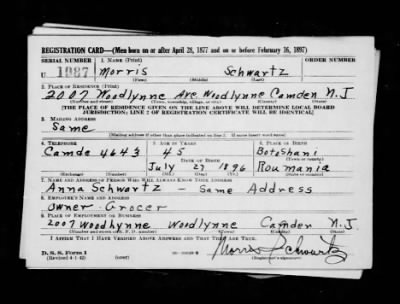 REGISTRATION CARD—(Men born on or after April 28, 1877 and on or before February 16, 1897)
SERIAL NUMBER 1. NAME (Print) ORDER NUMBER
U 1087 Morris Schwartz
(First) (Middle) (Last)
2. PLACE OF RESIDENCE (Print)
2007 Woodlynne Ave Woodlynne Camden N.J.
(Number and street) (Town, township, village, or city) (County) (State)
[THE PLACE OF RESIDENCE GIVEN ON THE LINE ABOVE WILL DETERMINE LOCAL BOARD
JURISDICTION; LINE 2 OF REGISTRATION CERTIFICATE WILL BE IDENTICAL]
3. MAILING ADDRESS
Same
[Mailing address if other than place indicated on line 2. If same insert word same]
4. TELEPHONE 5. AGE IN YEARS 6. PLACE OF BIRTH
Camde 4643 45 Botoshani
DATE OF BIRTH (Town or county)
July 27 1896 Roumania
(Mo.) (Day) (Yr.) (State or country)
7. NAME AND ADDRESS OF PERSON WHO WILL ALWAYS KNOW YOUR ADDRESS
Anna Schwartz – Same Address
8. EMPLOYER'S NAME AND ADDRESS
Owner - Grocer
9. PLACE OF EMPLOYMENT OR BUSINESS
2007 Woodlynne Woodlynne Camden N.J.
(Number and street or R. F. D. number) (Town) (County) (State)
I AFFIRM THAT I HAVE VERIFIED ABOVE ANSWERS AND THAT THEY ARE TRUE.
D. S. S. Form 1
(Revised 4-1-42) (over) Morris Schwartz
(Registrant's signature)